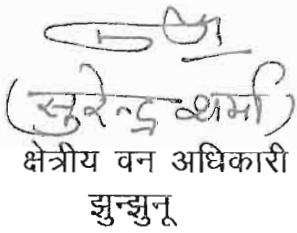 (सुरेन्द्र शर्मा)
क्षेत्रीय वन अधिकारी
झुन्झुनू